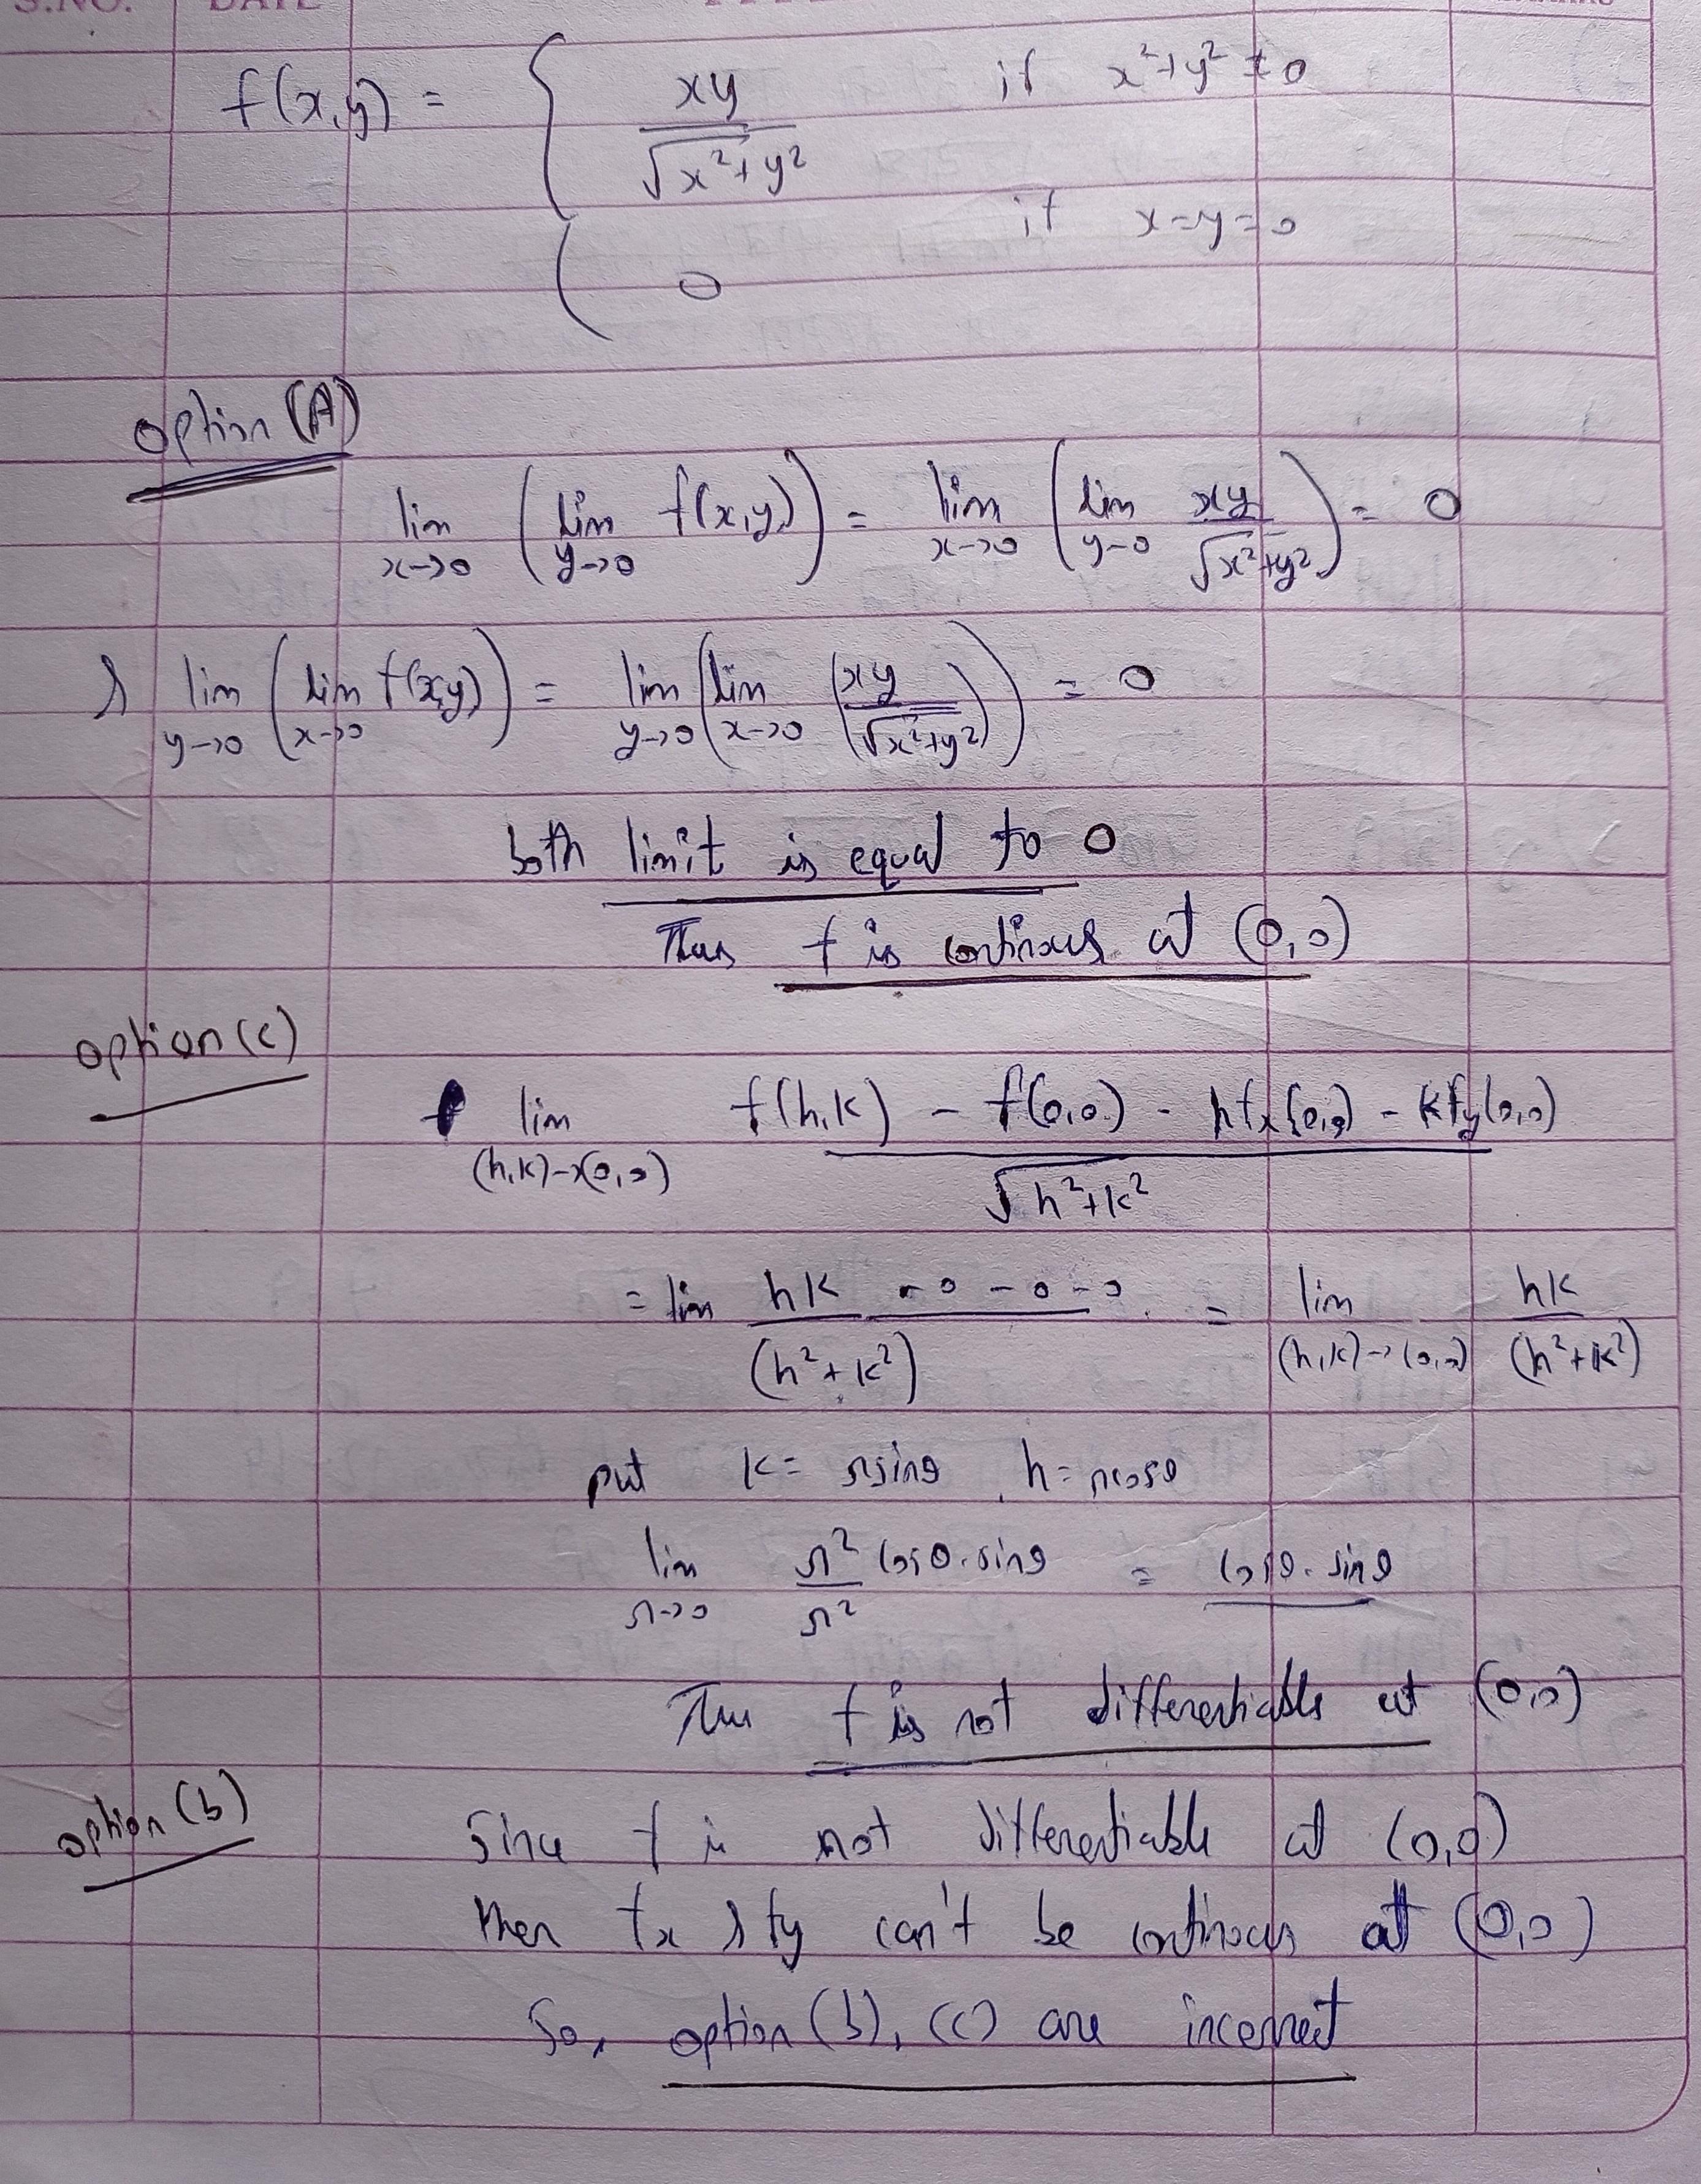 S.NO. DATE
f(x,y) = { xy / √x²+y² if x²+y² ≠ 0
0 if x=y=0
option (A)
lim x->0 ( lim y->0 f(x,y) ) = lim x->0 ( lim y-0 xy / √x²+y² ) = 0
& lim y->0 ( lim x->0 f(x,y) ) = lim y->0 ( lim x->0 ( xy / √x²+y² ) ) = 0
both limit is equal to 0
Thus f is continous at (0,0)
option (c)
lim (h,k)->(0,0) f(h,k) - f(0,0) - hfx(0,0) - kfy(0,0) / √h²+k²
= lim hk - 0 - 0 - 0 / (h²+k²) = lim (h,k)->(0,0) hk / (h²+k²)
put k= rsinθ , h= rcosθ
lim r->0 r² cosθ.sinθ / r² = cosθ.sinθ
Thus f is not differentiable at (0,0)
option (b)
Since f is not differentiable at (0,0)
then fx & fy can't be continous at (0,0)
So, option (b), (c) are incorrect